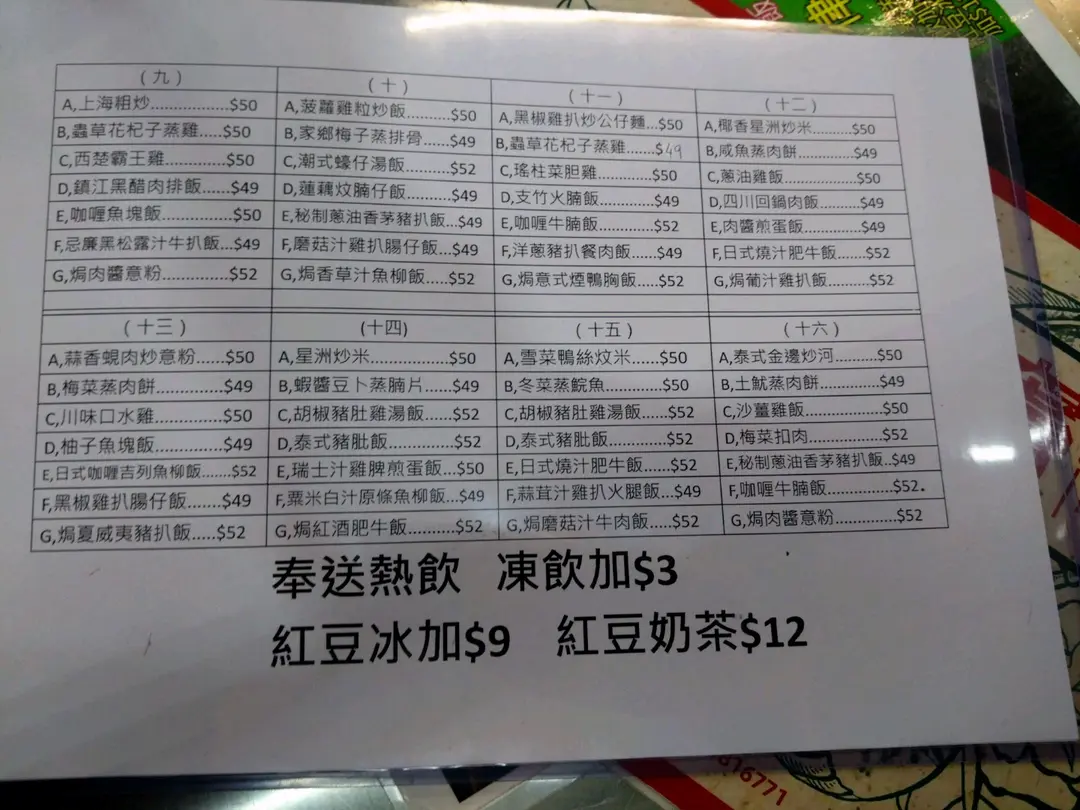 (九)
A,上海粗炒................$50
B,蟲草花杞子蒸雞.....$50
C,西楚霸王雞............$50
D,鎮江黑醋肉排飯......$49
E,咖喱魚塊飯..............$50
F,忌廉黑松露汁牛扒飯...$49
G,焗肉醬意粉..............$52
(十)
A,菠蘿雞粒炒飯.........$50
B,家鄉梅子蒸排骨......$49
C,潮式蠔仔湯飯.........$52
D,蓮藕炆腩仔飯.........$49
E,秘制蔥油香茅豬扒飯...$49
F,磨菇汁雞扒腸仔飯...$49
G,焗香草汁魚柳飯......$52
(十一)
A,黑椒雞扒炒公仔麵...$50
B,蟲草花杞子蒸雞.......$49
C,瑤柱菜胆雞..............$50
D,支竹火腩飯..............$49
E,咖喱牛腩飯..............$52
F,洋蔥豬扒餐肉飯......$49
G,焗意式煙鴨胸飯......$52
(十二)
A,椰香星洲炒米..........$50
B,咸魚蒸肉餅..............$49
C,蔥油雞飯..................$50
D,四川回鍋肉飯..........$49
E,肉醬煎蛋飯..............$49
F,日式燒汁肥牛飯......$52
G,焗葡汁雞扒飯..........$52
(十三)
A,蒜香蜆肉炒意粉......$50
B,梅菜蒸肉餅..............$49
C,川味口水雞..............$50
D,柚子魚塊飯..............$49
E,日式咖喱吉列魚柳飯......$52
F,黑椒雞扒腸仔飯......$49
G,焗夏威夷豬扒飯......$52
(十四)
A,星洲炒米................$50
B,蝦醬豆卜蒸腩片......$49
C,胡椒豬肚雞湯飯......$52
D,泰式豬肶飯............$52
E,瑞士汁雞脾煎蛋飯...$50
F,粟米白汁原條魚柳飯...$49
G,焗紅酒肥牛飯.........$52
(十五)
A,雪菜鴨絲炆米.........$50
B,冬菜蒸鯇魚............$50
C,胡椒豬肚雞湯飯......$52
D,泰式豬肶飯............$52
E,日式燒汁肥牛飯......$52
F,蒜茸汁雞扒火腿飯...$49
G,焗磨菇汁牛肉飯.....$52
(十六)
A,泰式金邊炒河..........$50
B,土魷蒸肉餅..............$49
C,沙薑雞飯..................$50
D,梅菜扣肉..................$52
E,秘制蔥油香茅豬扒飯..$49
F,咖喱牛腩飯................$52.
G,焗肉醬意粉..............$52
奉送熱飲 凍飲加$3
紅豆冰加$9 紅豆奶茶$12